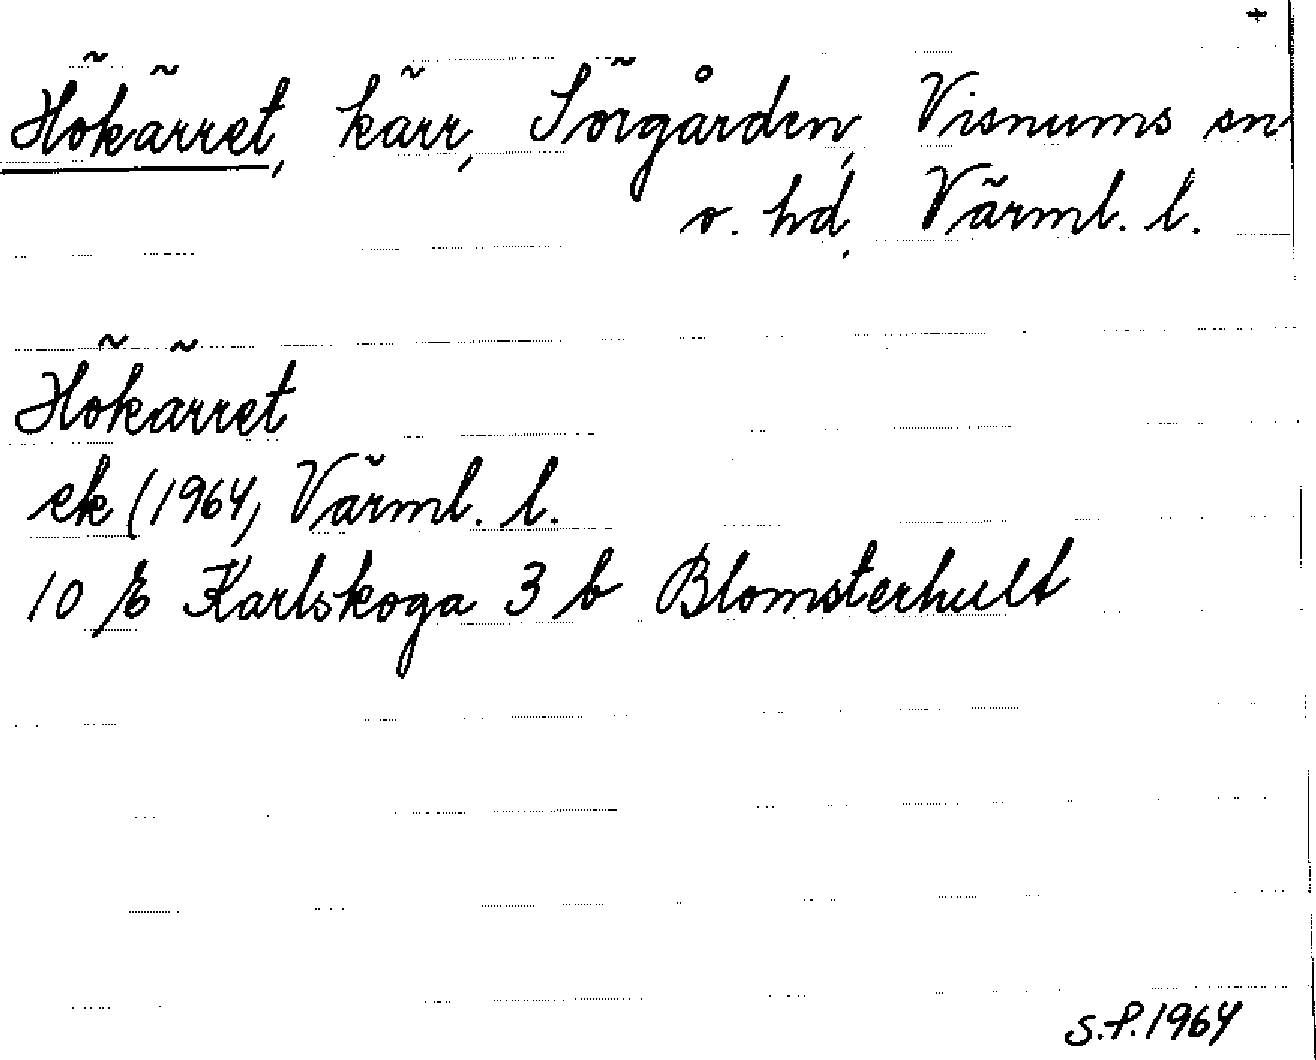 Hökärret, kärr, Sörgården, Visnums sn
o. hd, Värml. l.
Hökärret
ek (1964) Värml. l.
10 E Karlskoga 3 b Blomsterhult
S.F. 1964